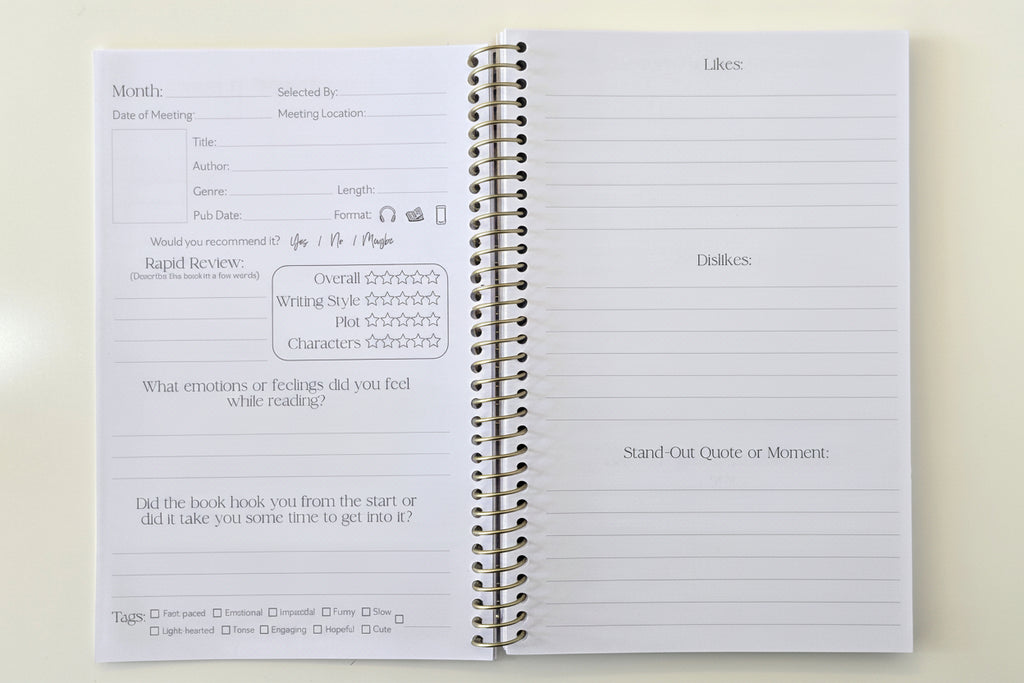 Month:
Selected By:
Date of Meeting:
Meeting Location:
Title:
Author:
Genre:
Length:
Pub Date:
Format:
Would you recommend it? Yes / No / Maybe
Rapid Review:
(Describe this book in a few words)
Overall
Writing Style
Plot
Characters
What emotions or feelings did you feel
while reading?
Did the book hook you from the start or
did it take you some time to get into it?
Tags: Fast paced Emotional Funny Slow
Light-hearted Tense Engaging Hopeful Cute
Likes:
Dislikes:
Stand-Out Quote or Moment: